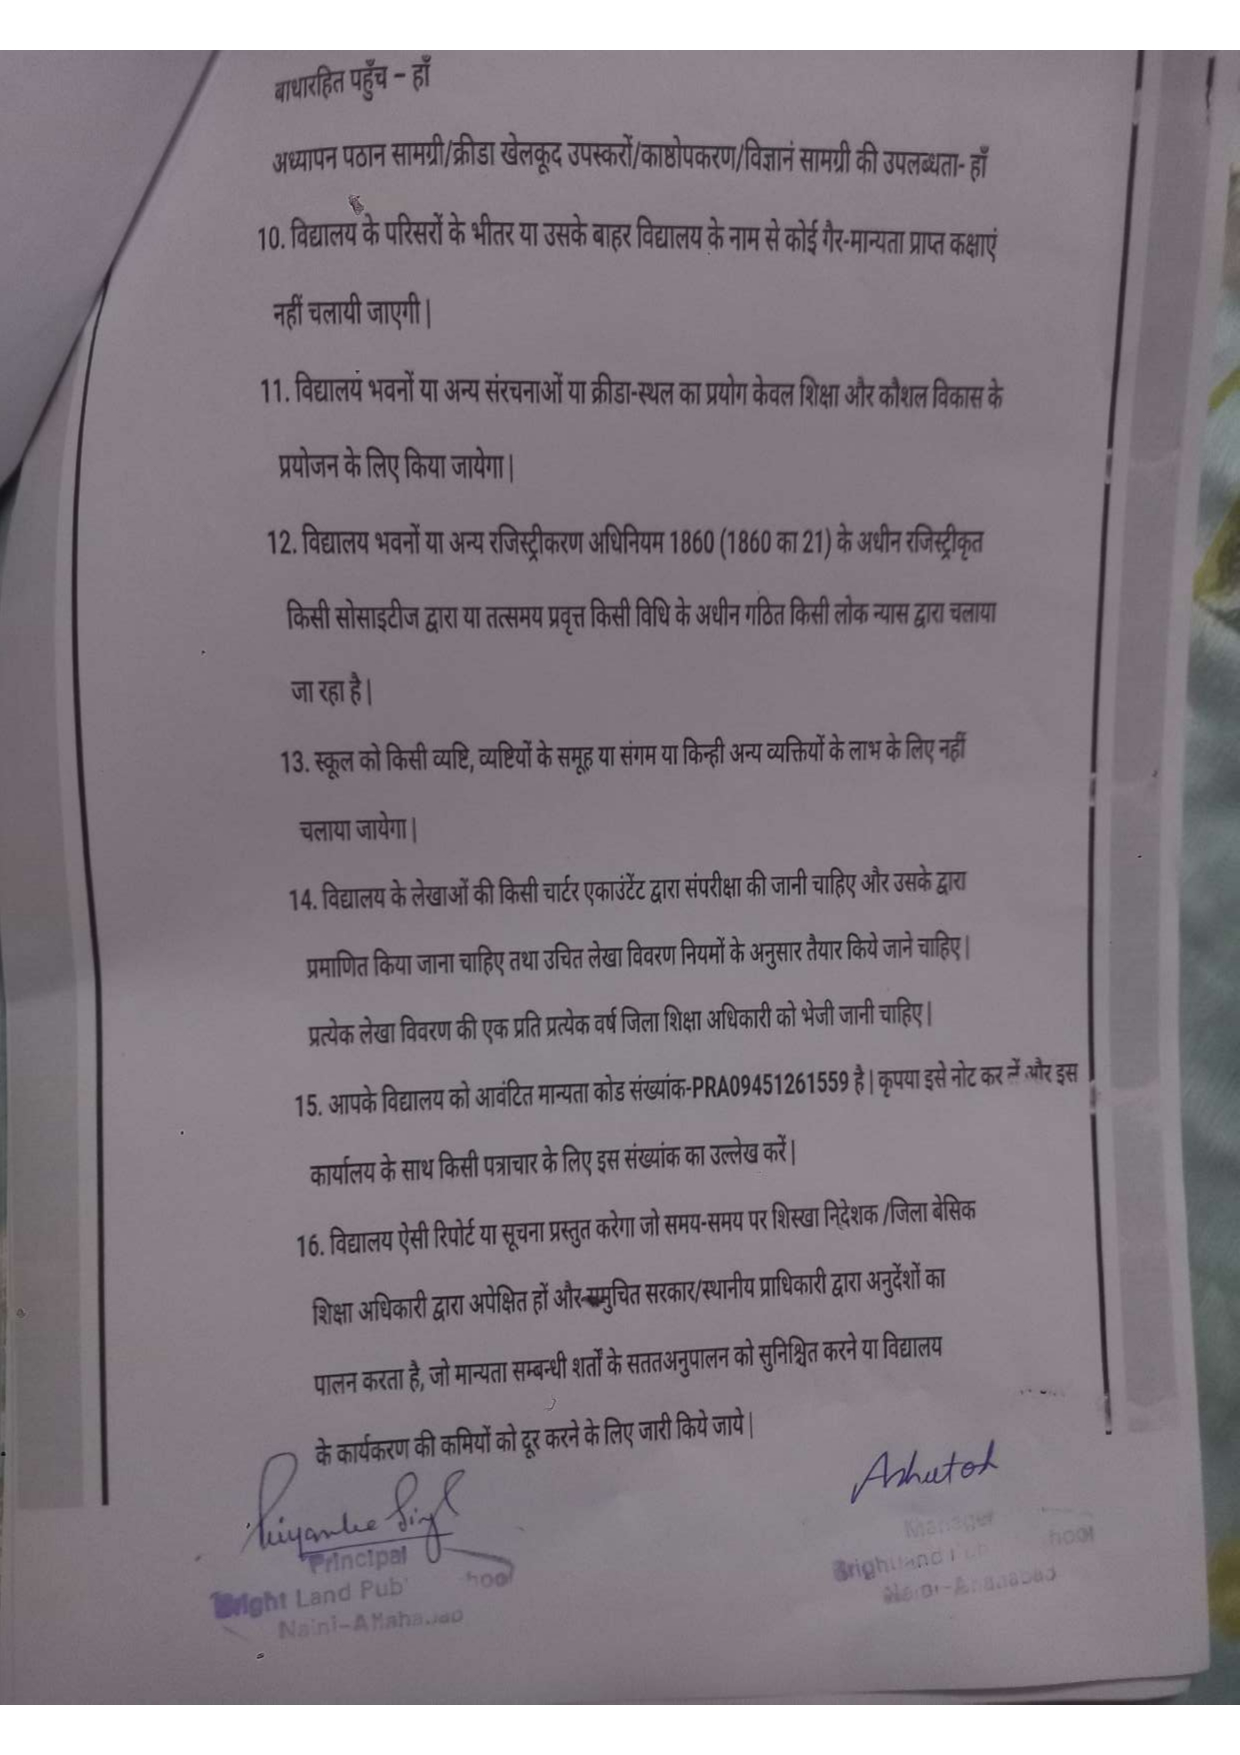 बाधारहित पहुँच – हाँ
अध्यापन पठान सामग्री/क्रीडा खेलकूद उपस्करों/काष्ठोपकरण/विज्ञानं सामग्री की उपलब्धता- हाँ
10. विद्यालय के परिसरों के भीतर या उसके बाहर विद्यालय के नाम से कोई गैर-मान्यता प्राप्त कक्षाएं
नहीं चलायी जाएगी |
11. विद्यालय भवनों या अन्य संरचनाओं या क्रीडा-स्थल का प्रयोग केवल शिक्षा और कौशल विकास के
प्रयोजन के लिए किया जायेगा |
12. विद्यालय भवनों या अन्य रजिस्ट्रीकरण अधिनियम 1860 (1860 का 21) के अधीन रजिस्ट्रीकृत
किसी सोसाइटीज द्वारा या तत्समय प्रवृत्त किसी विधि के अधीन गठित किसी लोक न्यास द्वारा चलाया
जा रहा है |
13. स्कूल को किसी व्यष्टि, व्यष्टियों के समूह या संगम या किन्ही अन्य व्यक्तियों के लाभ के लिए नहीं
चलाया जायेगा |
14. विद्यालय के लेखाओं की किसी चार्टर एकाउंटेंट द्वारा संपरीक्षा की जानी चाहिए और उसके द्वारा
प्रमाणित किया जाना चाहिए तथा उचित लेखा विवरण नियमों के अनुसार तैयार किये जाने चाहिए |
प्रत्येक लेखा विवरण की एक प्रति प्रत्येक वर्ष जिला शिक्षा अधिकारी को भेजी जानी चाहिए |
15. आपके विद्यालय को आवंटित मान्यता कोड संख्यांक-PRA09451261559 है | कृपया इसे नोट कर लें और इस
कार्यालय के साथ किसी पत्राचार के लिए इस संख्यांक का उल्लेख करें |
16. विद्यालय ऐसी रिपोर्ट या सूचना प्रस्तुत करेगा जो समय-समय पर शिस्खा निदेशक /जिला बेसिक
शिक्षा अधिकारी द्वारा अपेक्षित हों और समुचित सरकार/स्थानीय प्राधिकारी द्वारा अनुदेंशों का
पालन करता है, जो मान्यता सम्बन्धी शर्तों के सततअनुपालन को सुनिश्चित करने या विद्यालय
के कार्यकरण की कमियों को दूर करने के लिए जारी किये जाये |
Priyanka Singh
Principal
Bright Land
Naini-Allahabad
Ashutosh
Manager